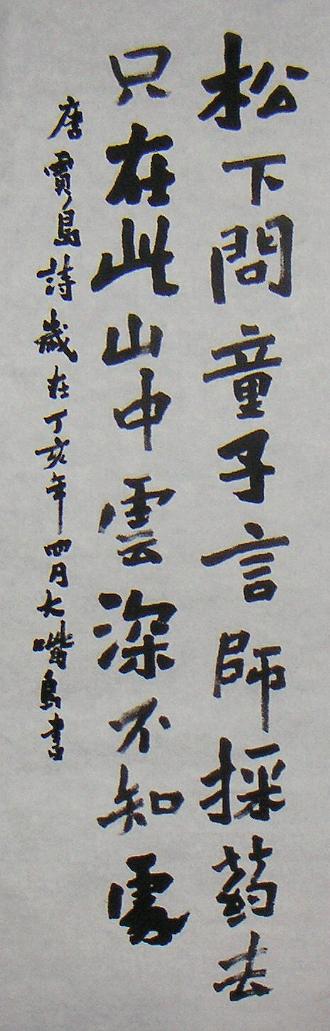 松下問童子言師採药去
只在此山中雲深不知處
唐賈島詩歲在丁亥年四月大嘴鳥書